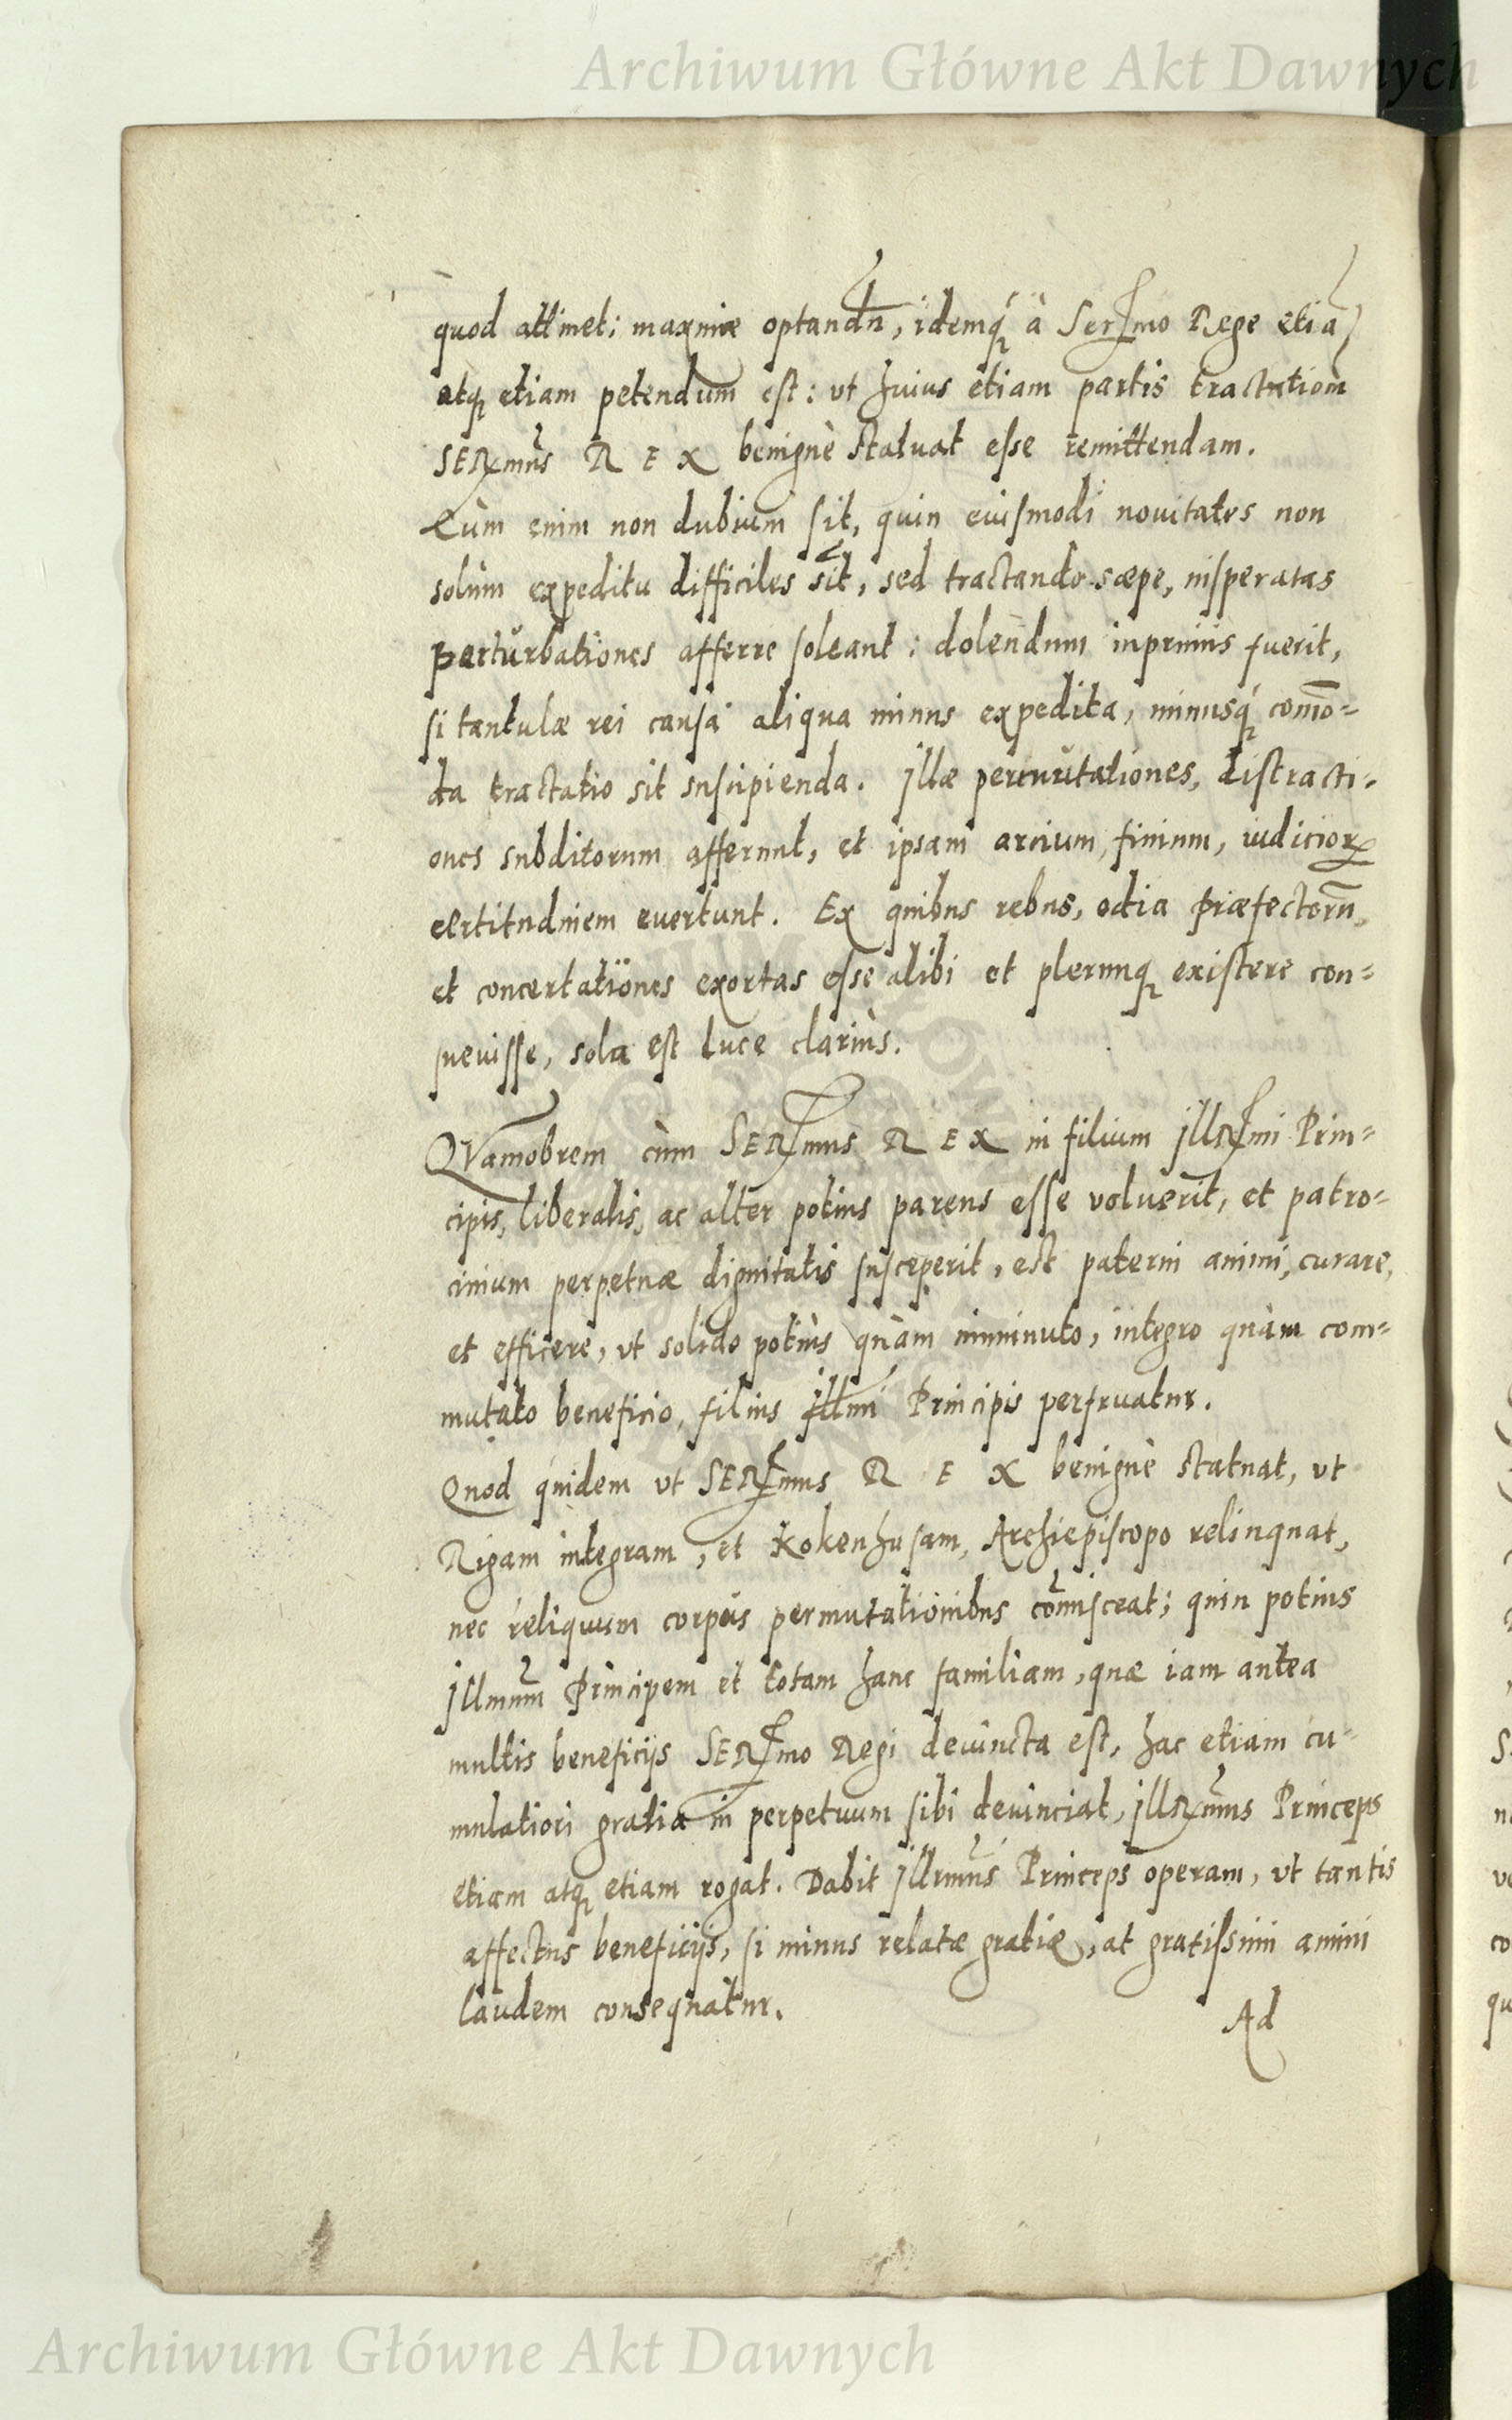 Archiwum Główne Akt Dawnych
quod attinet; maximæ optandũ, idemq́ à Serṃo Rege etiã
atq etiam petendum est: vt huius etiam partis tractationẽ
SERmus REX benignè statuat esse remittendam.
Cùm enim non dubium sit, quin eiusmodi nouitates non
solùm expeditu difficiles sĩt, sed tractando sæpe, insperatas
perturbationes afferre soleant: dolendum inprimis fuerit,
si tantulæ rei causa aliqua minus expedita, minusq́ com̃o=
da tractatio sit suscipienda. Jllæ permutationes, distracti=
ones subditorum afferunt, et ipsam arcium, finium, iudicior
certitudinem euertunt. Ex quibus rebus, odia præfectorũ,
et concertationes exortas esse alibi et plerumq existere con=
sueuisse, sola est luce clarius.
QVamobrem cùm SERmus REX in filium JllRmi Prin=
cipis, liberalis, ac alter potius parens esse voluerit, et patro=
cinium perpetuæ dignitatis susceperit, est paterni animi, curare,
et efficere, vt solido potiùs quàm imminuto, integro quàm com=
mutato beneficio, filius Jllmi Principis perfruatur.
Quod quidem vt SERmus REX benignè statuat, vt
Rigam integram, et Kokenhusam, Archiepiscopo relinquat,
nec reliquum corpus permutationibus cõmisceat; quin potius
Jllmũm Principem et totam hanc familiam, quæ iam antea
multis beneficijs SERmo Regi deuincta est, hac etiam cu=
mulatiori gratia in perpetuum sibi deuinciat, JllRmus Princeps
etiam atq etiam rogat. Dabit Jllrmus Princeps operam, vt tantis
affectus beneficijs, si minus relatæ gratiæ, at gratissimi animi
laudem consequatur.
Ad
Archiwum Główne Akt Dawnych